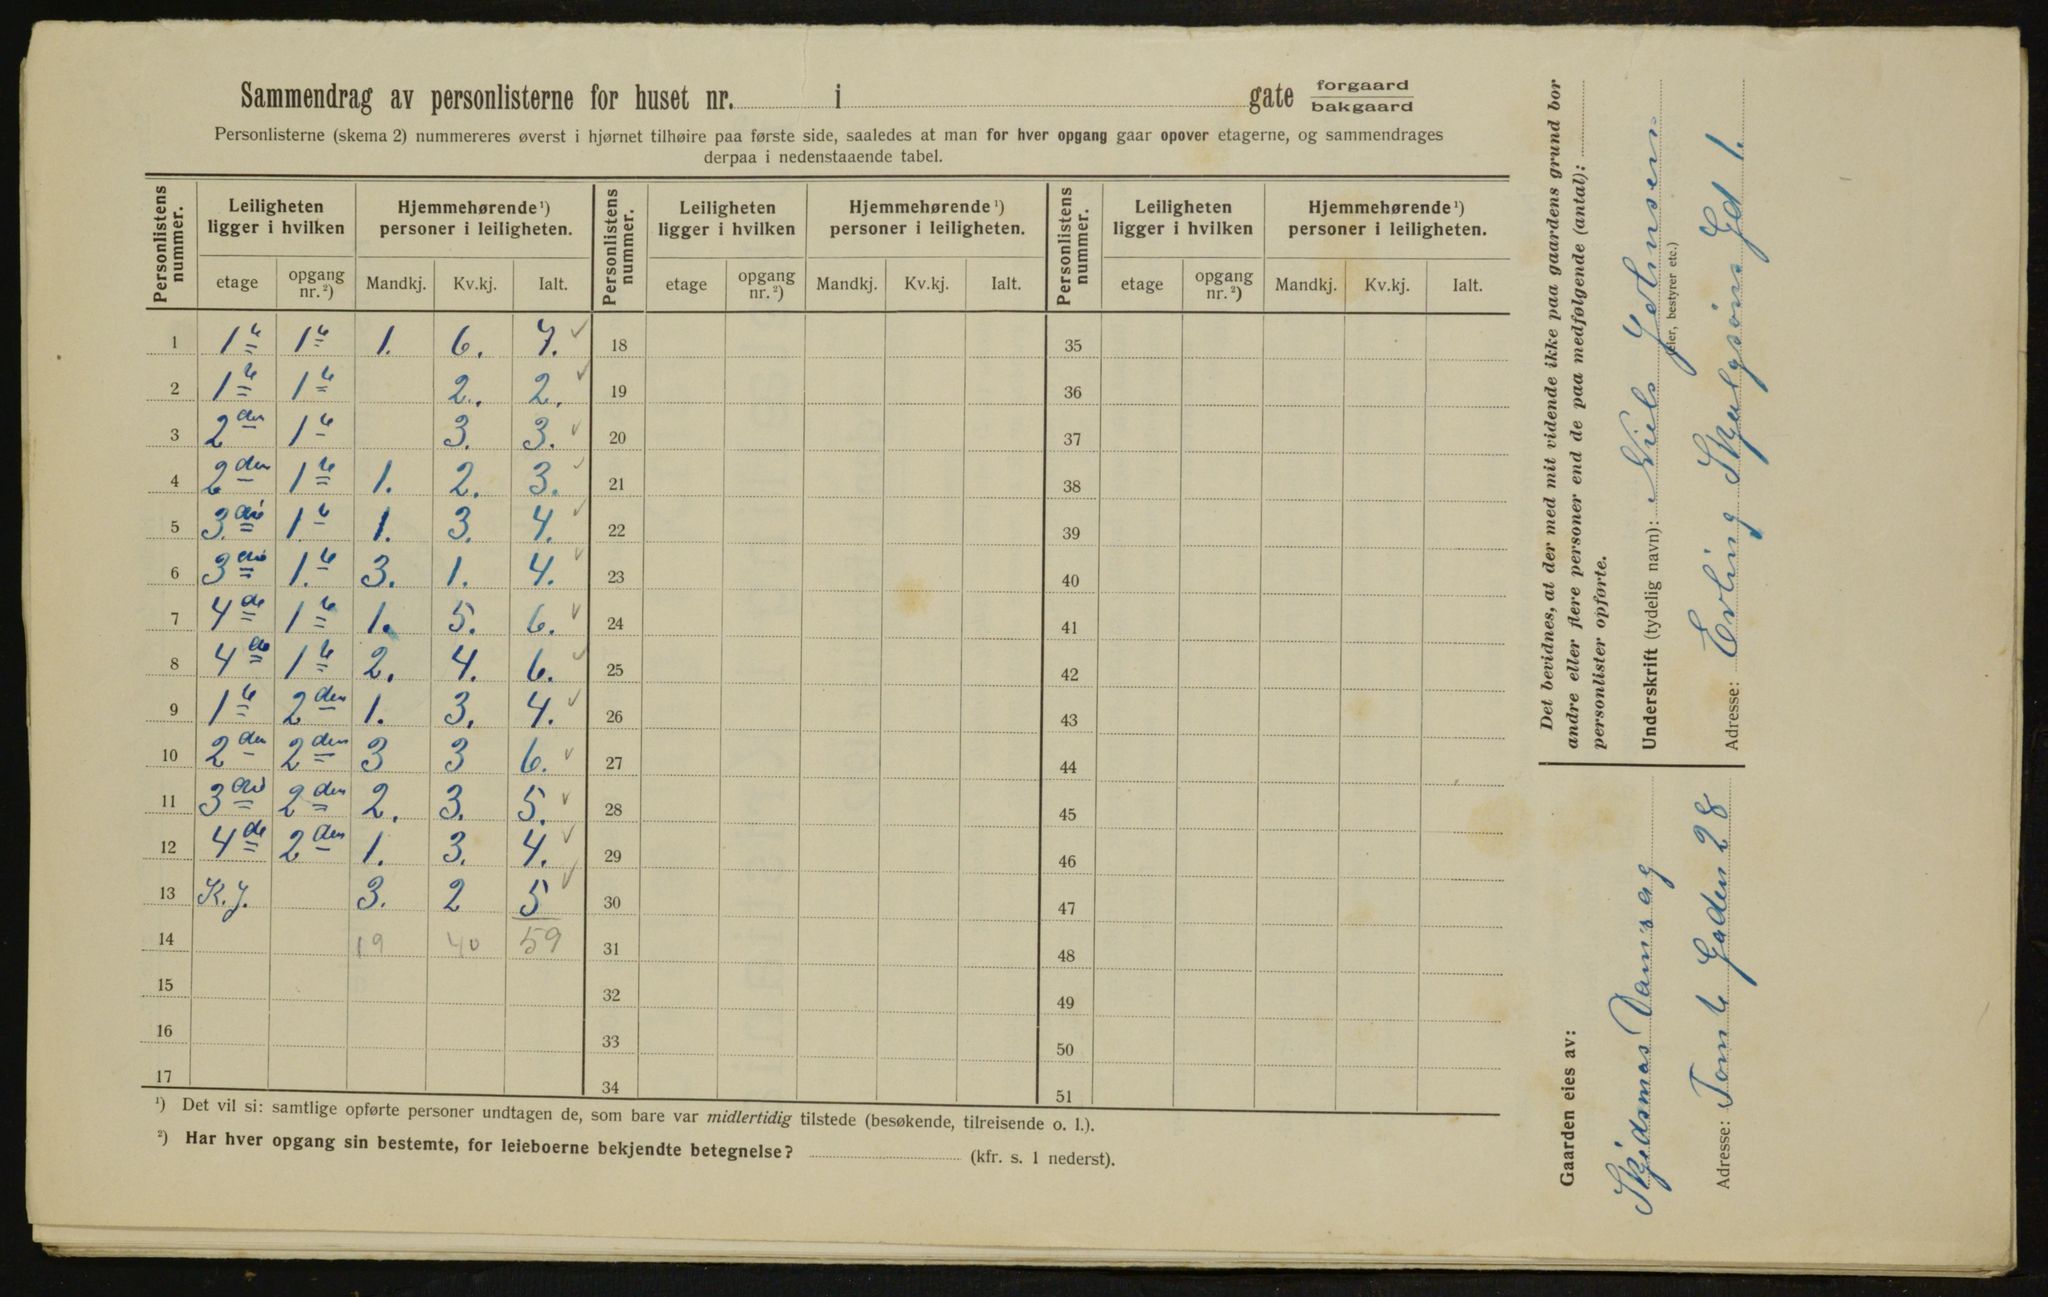 Sammendrag av personlisterne for huset nr. i gate forgaard
bakgaard
Personlisterne (skema 2) nummereres øverst i hjørnet tilhøire paa første side, saaledes at man for hver opgang gaar opover etagerne, og sammendrages
derpaa i nedenstaaende tabel.
Personlistens nummer. Leiligheten ligger i hvilken Hjemmehørende¹) personer i leiligheten. Personlistens nummer. Leiligheten ligger i hvilken Hjemmehørende¹) personer i leiligheten. Personlistens nummer. Leiligheten ligger i hvilken Hjemmehørende¹) personer i leiligheten.
etage opgang nr.²) Mandkj. Kv.kj. Ialt. etage opgang nr.²) Mandkj. Kv.kj. Ialt. etage opgang nr.²) Mandkj. Kv.kj. Ialt.
1 1te 1te 1. 6. 7. ✓ 18 35
2 1te 1te 2. 2. ✓ 19 36
3 2den 1te 3. 3. ✓ 20 37
4 2den 1te 1. 2. 3. ✓ 21 38
5 3die 1te 1. 3. 4. ✓ 22 39
6 3die 1.te 3. 1. 4. ✓ 23 40
7 4de 1te 1. 5. 6. ✓ 24 41
8 4de 1te 2. 4. 6. ✓ 25 42
9 1te 2den 1. 3. 4. ✓ 26 43
10 2den 2den 3 3 6. ✓ 27 44
11 3die 2den 2. 3. 5. ✓ 28 45
12 4de 2den 1. 3. 4. ✓ 29 46
13 K.j. 3. 2 5 ✓ 30 47
14 19 40 59 31 48
15 32 49
16 33 50
17 34 51
¹) Det vil si: samtlige opførte personer undtagen de, som bare var midlertidig tilstede (besøkende, tilreisende o. l.).
²) Har hver opgang sin bestemte, for leieboerne bekjendte betegnelse? (kfr. s. 1 nederst).
Det bevidnes, at der med mit vidende ikke paa gaardens grund bor
andre eller flere personer end de paa medfølgende (antal):
personlister opførte.
Underskrift (tydelig navn): Niels Johnsen
(eier, bestyrer etc.)
Adresse: Erling Skjalgsöns Gd 1.
Gaarden eies av:
Skjidsmos
Adresse: Tomte Gaden 28